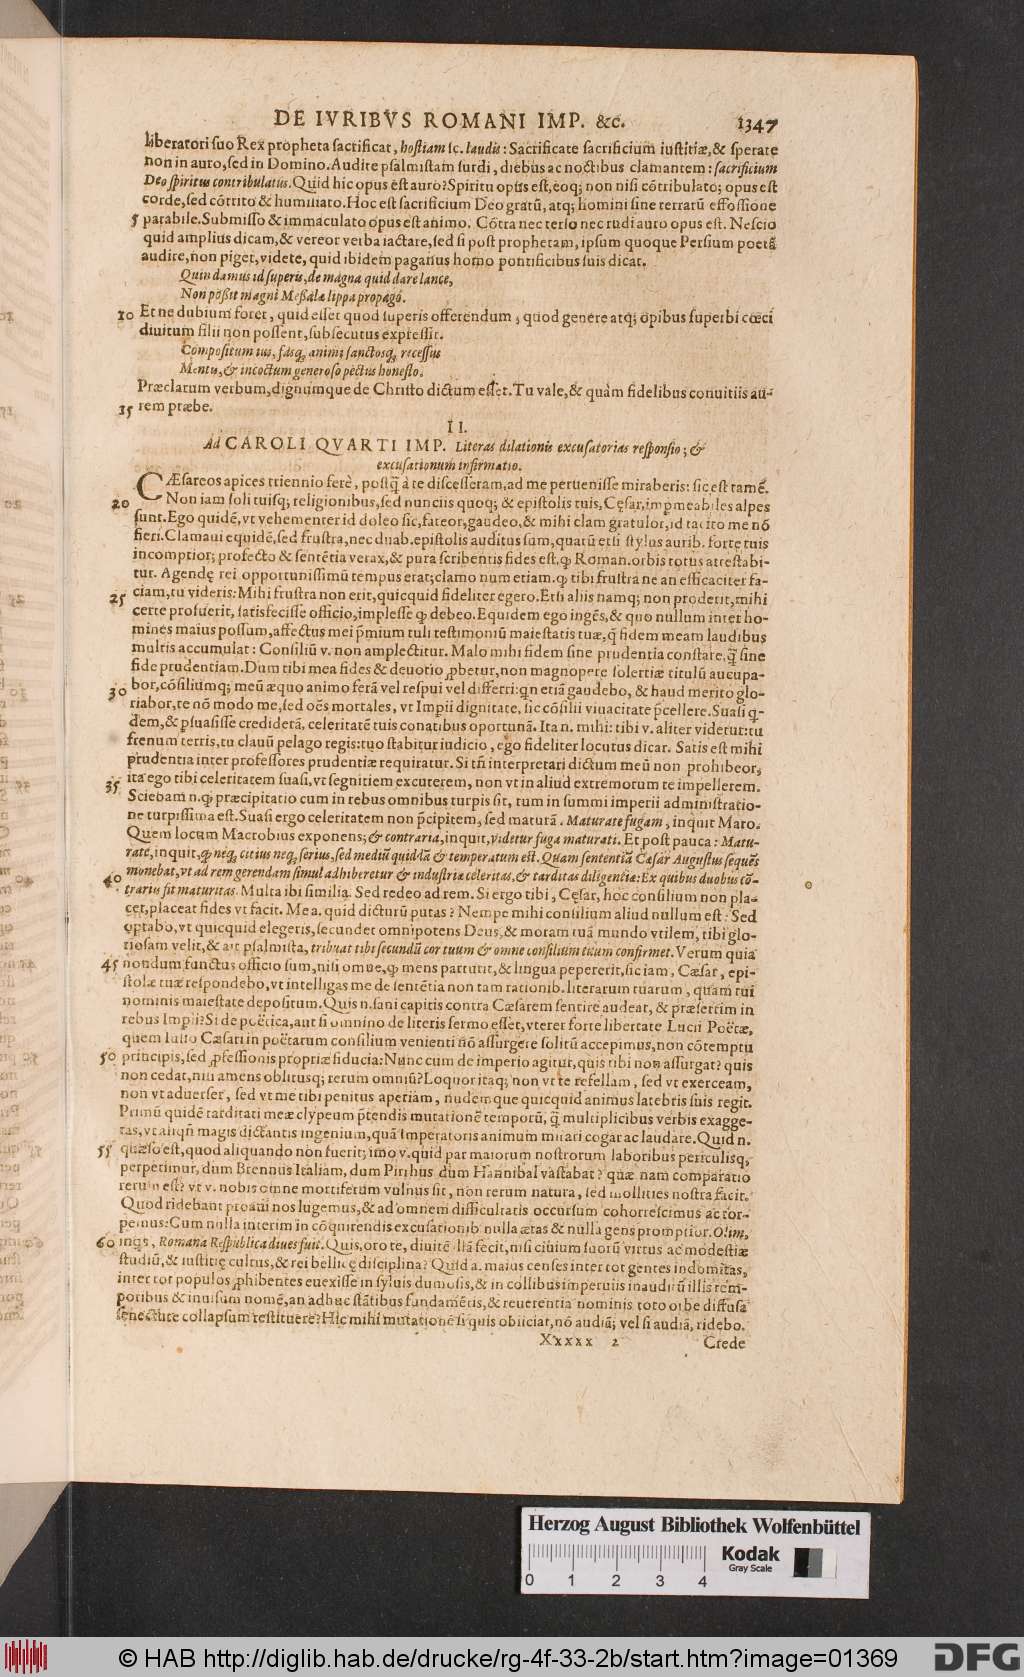 DE IVRIBVS ROMANI IMP. &c. 1347
liberatori suo Rex propheta sacrificat, hostiam sc. laudis: Sacrificate sacrificium iustitiæ, & sperate
non in auro, sed in Domino. Audite psalmistam surdi, diebus ac noctibus clamantem: sacrificium
Deo spiritus contribulatus. Quid hic opus est auro? Spiritu opus est, eoq; non nisi cõtribulato; opus est
corde, sed cõtrito & humiliato. Hoc est sacrificium Deo gratũ, atq; homini sine terrarũ effossione
5 parabile. Submisso & immaculato opus est animo. Cõtra nec terso nec rudi auro opus est. Nescio
quid amplius dicam, & vereor verba iactare, sed si post prophetam, ipsum quoque Persium poetã
audire, non piget, videte, quid ibidem paganus homo pontificibus suis dicat.
Quin damus id superis, de magna quid dare lance,
Non poßit magni Meßalæ lippa propago.
10 Et ne dubium foret, quid esset quod superis offerendum, quod genere atq; opibus superbi cœci
diuitum filii non possent, subsecutus expressit.
Compositum ius, fasq; animi sanctosq; recessus
Mentis, & incoctum generoso pectus honesto.
Præclarum verbum, dignumque de Christo dictum esset. Tu vale, & quàm fidelibus conuitiis au-
15 rem præbe.
II.
Ad CAROLI QVARTI IMP. Literas dilationis excusatorias responsio; &
excusationum infirmatio.
CÆsareos apices triennio ferè, postq̃ à te discesseram, ad me peruenisse miraberis: sic est tamẽ.
20 Non iam soli tuisq; religionibus, sed nunciis quoq; & epistolis tuis, Cęsar, impmeabiles alpes
sunt. Ego quidẽ, vt vehementer id doleo sic, fateor, gaudeo, & mihi clam gratulor, id tacito me nõ
fieri. Clamaui equidẽ, sed frustra, nec duab. epistolis auditus sum, quarũ etsi stylus aurib. forte tuis
incomptior; profecto & sentẽtia verax, & pura scribentis fides est, ꝙ Roman. orbis totus attestabi-
tur. Agendę rei opportunissimũ tempus erat; clamo num etiam. ꝙ tibi frustra ne an efficaciter fa-
25 ciam, tu videris: Mihi frustra non erit, quicquid fideliter egero. Etsi aliis namq; non proderit, mihi
certe profuerit, satisfecisse officio, implesse ꝙ debeo. Equidem ego ingẽs, & quo nullum inter ho-
mines maius possum, affectus mei p̃mium tuli testimoniũ maiestatis tuæ, q̃ fidem meam laudibus
multis accumulat: Consiliũ v. non amplectitur. Malo mihi fidem sine prudentia constare, q̃ sine
fide prudentiam. Dum tibi mea fides & deuotio ꝓbetur, non magnopere solertiæ titulũ aucupa-
30 bor, cõsiliumq; meũ æquo animo ferã vel respui vel differri: qn etiã gaudebo, & haud merito glo-
riabor, te nõ modo me, sed oẽs mortales, vt Impii dignitate, sic cõsilii viuacitate p̃cellere. Suasi q-
dem, & ꝑsuasisse crediderã, celeritatẽ tuis conatibus oportunã. Ita n. mihi: tibi v. aliter videtur: tu
frenum terris, tu clauũ pelago regis: tuo stabitur iudicio, ego fideliter locutus dicar. Satis est mihi
prudentia inter professores prudentiæ requiratur. Si tñ interpretari dictum meũ non prohibeor,
35 ita ego tibi celeritatem suasi, vt segnitiem excuterem, non vt in aliud extremorum te impellerem.
Sciebam n. ꝙ præcipitatio cum in rebus omnibus turpis sit, tum in summi imperii administratio-
ne turpissima est. Suasi ergo celeritatem non p̃cipitem, sed maturã. Maturate fugam, inquit Maro.
Quem locum Macrobius exponens; & contraria, inquit, videtur fuga maturati. Et post pauca: Matu-
rate, inquit, ꝙ neq; citius neq; serius, sed mediũ quiddã & temperatum est. Quam sententiã Cæsar Augustus sequẽs
40 monebat, vt ad rem gerendam simul adhiberetur & industriæ celeritas, & tarditas diligentiæ: Ex quibus duobus cõ-
trarius fit maturitas. Multa ibi similia. Sed redeo ad rem. Si ergo tibi, Cęsar, hoc consilium non pla-
cet, placeat fides vt facit. Mea. quid dicturũ putas? Nempe mihi consilium aliud nullum est: Sed
optabo, vt quicquid elegeris, secundet omnipotens Deus, & moram tuã mundo vtilem, tibi glo-
riosam velit, & ait psalmista, tribuat tibi secundũ cor tuum & omne consilium tuum confirmet. Verum quia
45 nondum functus officio sum, nisi omne, ꝙ mens parturit, & lingua pepererit, sic iam, Cæsar, epi-
stolæ tuæ respondebo, vt intelligas me de sentẽtia non tam rationib. literarum tuarum, quàm tui
nominis maiestate depositum. Quis n. sani capitis contra Cæsarem sentire audeat, & præsertim in
rebus Impii? Si de poëtica, aut si omnino de literis sermo esset, vterer forte libertate Lucii Poëtæ,
quem Iulio Cæsari in poëtarum consilium venienti nõ assurgere solitũ accepimus, non cõtemptu
50 principis, sed ꝓfessionis propriæ fiducia: Nunc cum de imperio agitur, quis tibi non assurgat? quis
non cedat, nisi amens oblitusq; rerum omniũ? Loquor itaq; non vt te refellam, sed vt exerceam,
non vt aduerser, sed vt me tibi penitus aperiam, nudemque quicquid animus latebris suis regit.
Primũ quidẽ tarditati meæ clypeum p̃tendis mutationẽ temporũ, q̃ multiplicibus verbis exagge-
ras, vt aliqñ magis dictantis ingenium, quã Imperatoris animum mirari cogar ac laudare. Quid n.
55 quæso est, quod aliquando non fuerit; imo v. quid par maiorum nostrorum laboribus periculisq;
perpetimur, dum Brennus Italiam, dum Pirrhus dum Hannibal vastabat? quæ nam comparatio
rerum est? vt v. nobis omne mortiferum vulnus sit, non rerum natura, sed mollities nostra facit.
Quod ridebant proaui nos lugemus, & ad omnem difficultatis occursum cohorrescimus ac tor-
pemus: Cum nulla interim in cõquirendis excusationib. nulla ætas & nulla gens promptior. Olim,
60 inqs, Romana Respublica diues fuit. Quis, oro te, diuitẽ illã fecit, nisi ciuium suorũ virtus ac modestiæ
studiũ, & iustitię cultus, & rei bellicę disciplina? Quid a. maius censes inter tot gentes indomitas,
inter tot populos ꝓhibentes euexisse in syluis dumosis, & in collibus imperuiis inauditũ illis tem-
poribus & inuisum nomẽ, an adhuc stãtibus fundamẽtis, & reuerentia nominis toto orbe diffusa
senectute collapsum restituere? Hic mihi mutationẽ si quis obiiciat, nõ audiã; vel si audiã, ridebo.
Xxxxx 2 Crede
Herzog August Bibliothek Wolfenbüttel
Kodak
Gray Scale
0 1 2 3 4
© HAB http://diglib.hab.de/drucke/rg-4f-33-2b/start.htm?image=01369
DFG